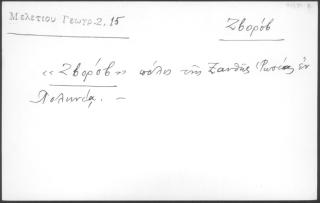 Μελετίου Γεωγρ. 2, 15
Ζβορόβ
«Ζβορόβ» πόλις τῆς Ξανθῆς Ρωσίας ἐν
Πολωνίᾳ. –